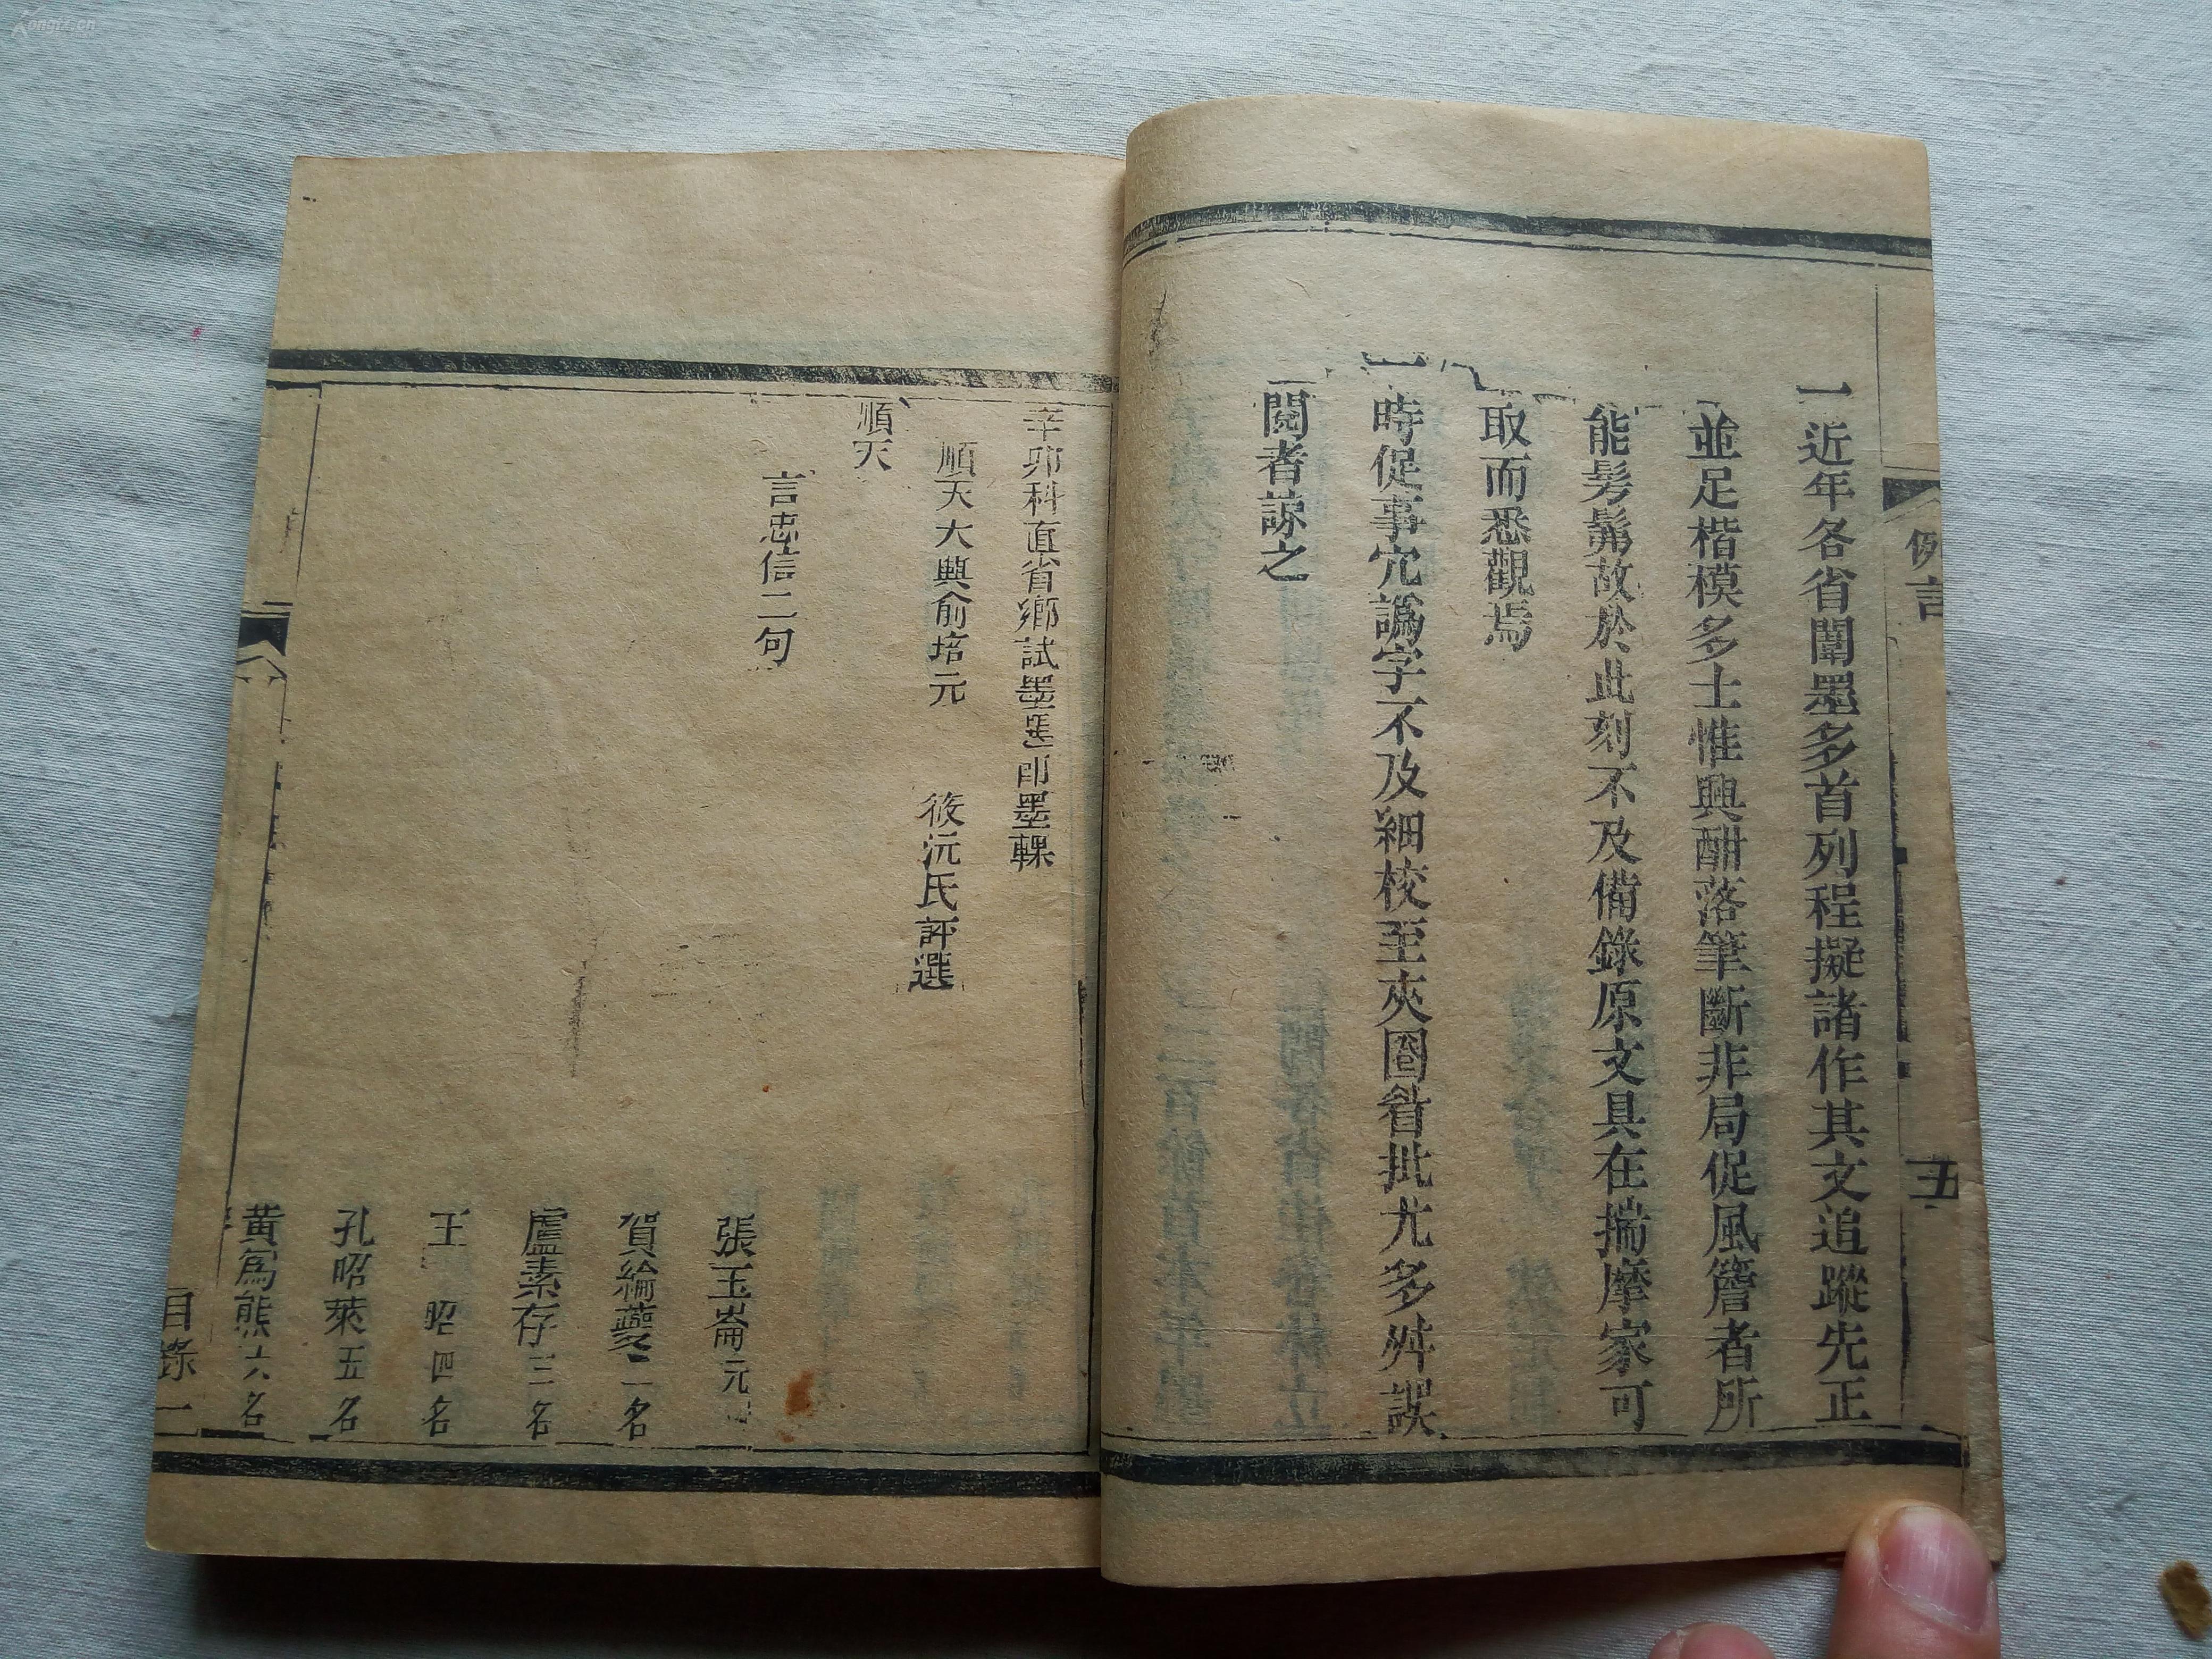 一近年各省闈墨多首列程擬諸作其文追蹤先正
並足楷模多士惟興酣落筆斷非局促風簷者所
能髣髴故於此刻不及備錄原文具在揣摩家可
取而悉觀焉
一時促事宂譌字不及細校至夾圈眉批尤多舛誤
閱者諒之
例言
五
辛卯科直省鄉試墨選即墨輠
順天大興俞培元
筱沅氏評選
順天
言忠信二句
張玉崙元
賀綸夔二名
盧素存三名
王昭四名
孔昭萊五名
黃為熊六名
目錄
一